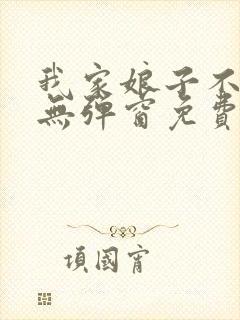 我家娘子不
無彈窗免費
項國宵